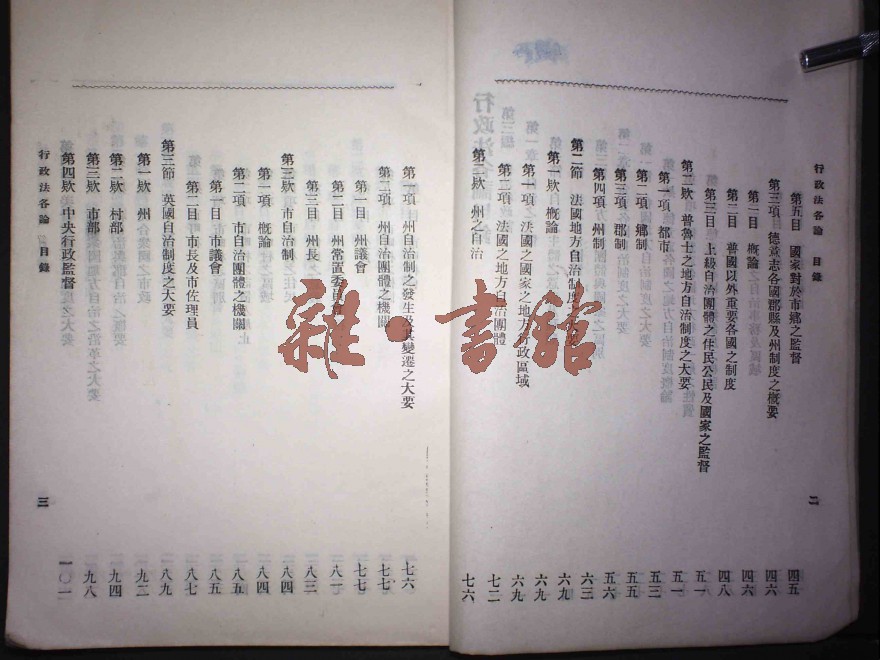 行政法各論 目錄
二
第五目 國家對於市鄉之監督 四五
第三項 德意志各國郡縣及州制度之概要 四六
第一目 概論 四六
第二目 普國以外重要各國之制度 四八
第三目 上級自治團體之住民公民及國家之監督 五一
第三欵 普魯士之地方自治制度之大要 五一
第一項 都市 五三
第二項 鄉制 五五
第三項 郡制 五六
第四項 州制 六三
第二節 法國地方自治制度之大要 六九
第一欵 概論 六九
第一項 法國之國家之地方行政區域 六九
第二項 法國之地方自治團體 七二
第二欵 州之自治 七六
第一項 州自治制之發生及其變遷之大要 七六
第二項 州自治團體之機關 七七
第一目 州議會 七七
第二目 州常置委員會 八一
第三目 州長 八二
第三欵 市自治制 八四
第一項 概論 八四
第二項 市自治團體之機關 八五
第一目 市議會 八五
第二目 市長及市佐理員 八七
第三節 英國自治制度之大要 八九
第一欵 州 九二
第二欵 村部 九四
第三欵 市部 九八
第四欵 中央行政監督 一〇一
行政法各論 目錄
三
雜·書館